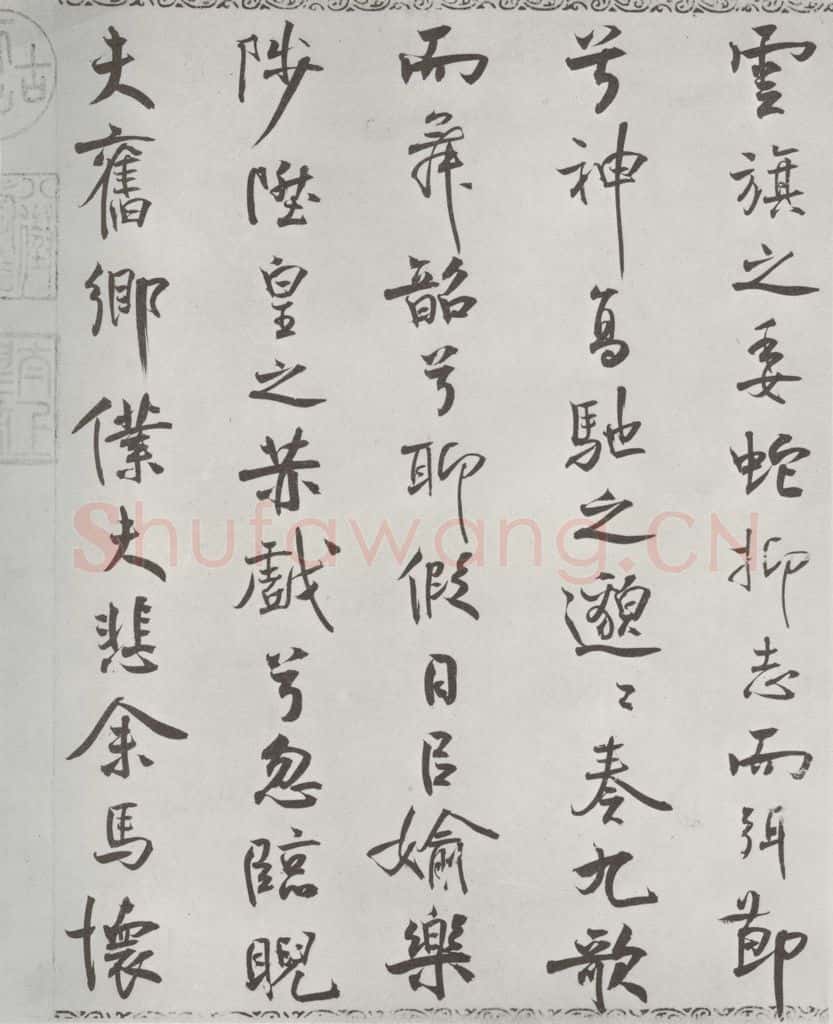 雲旗之委蛇抑志而弭節
兮神高馳之邈〻奏九歌
而舞韶兮聊假日以婾樂
陟陞皇之赫戲兮忽臨睨
夫舊鄉僕夫悲余馬懷
Shufawang.CN